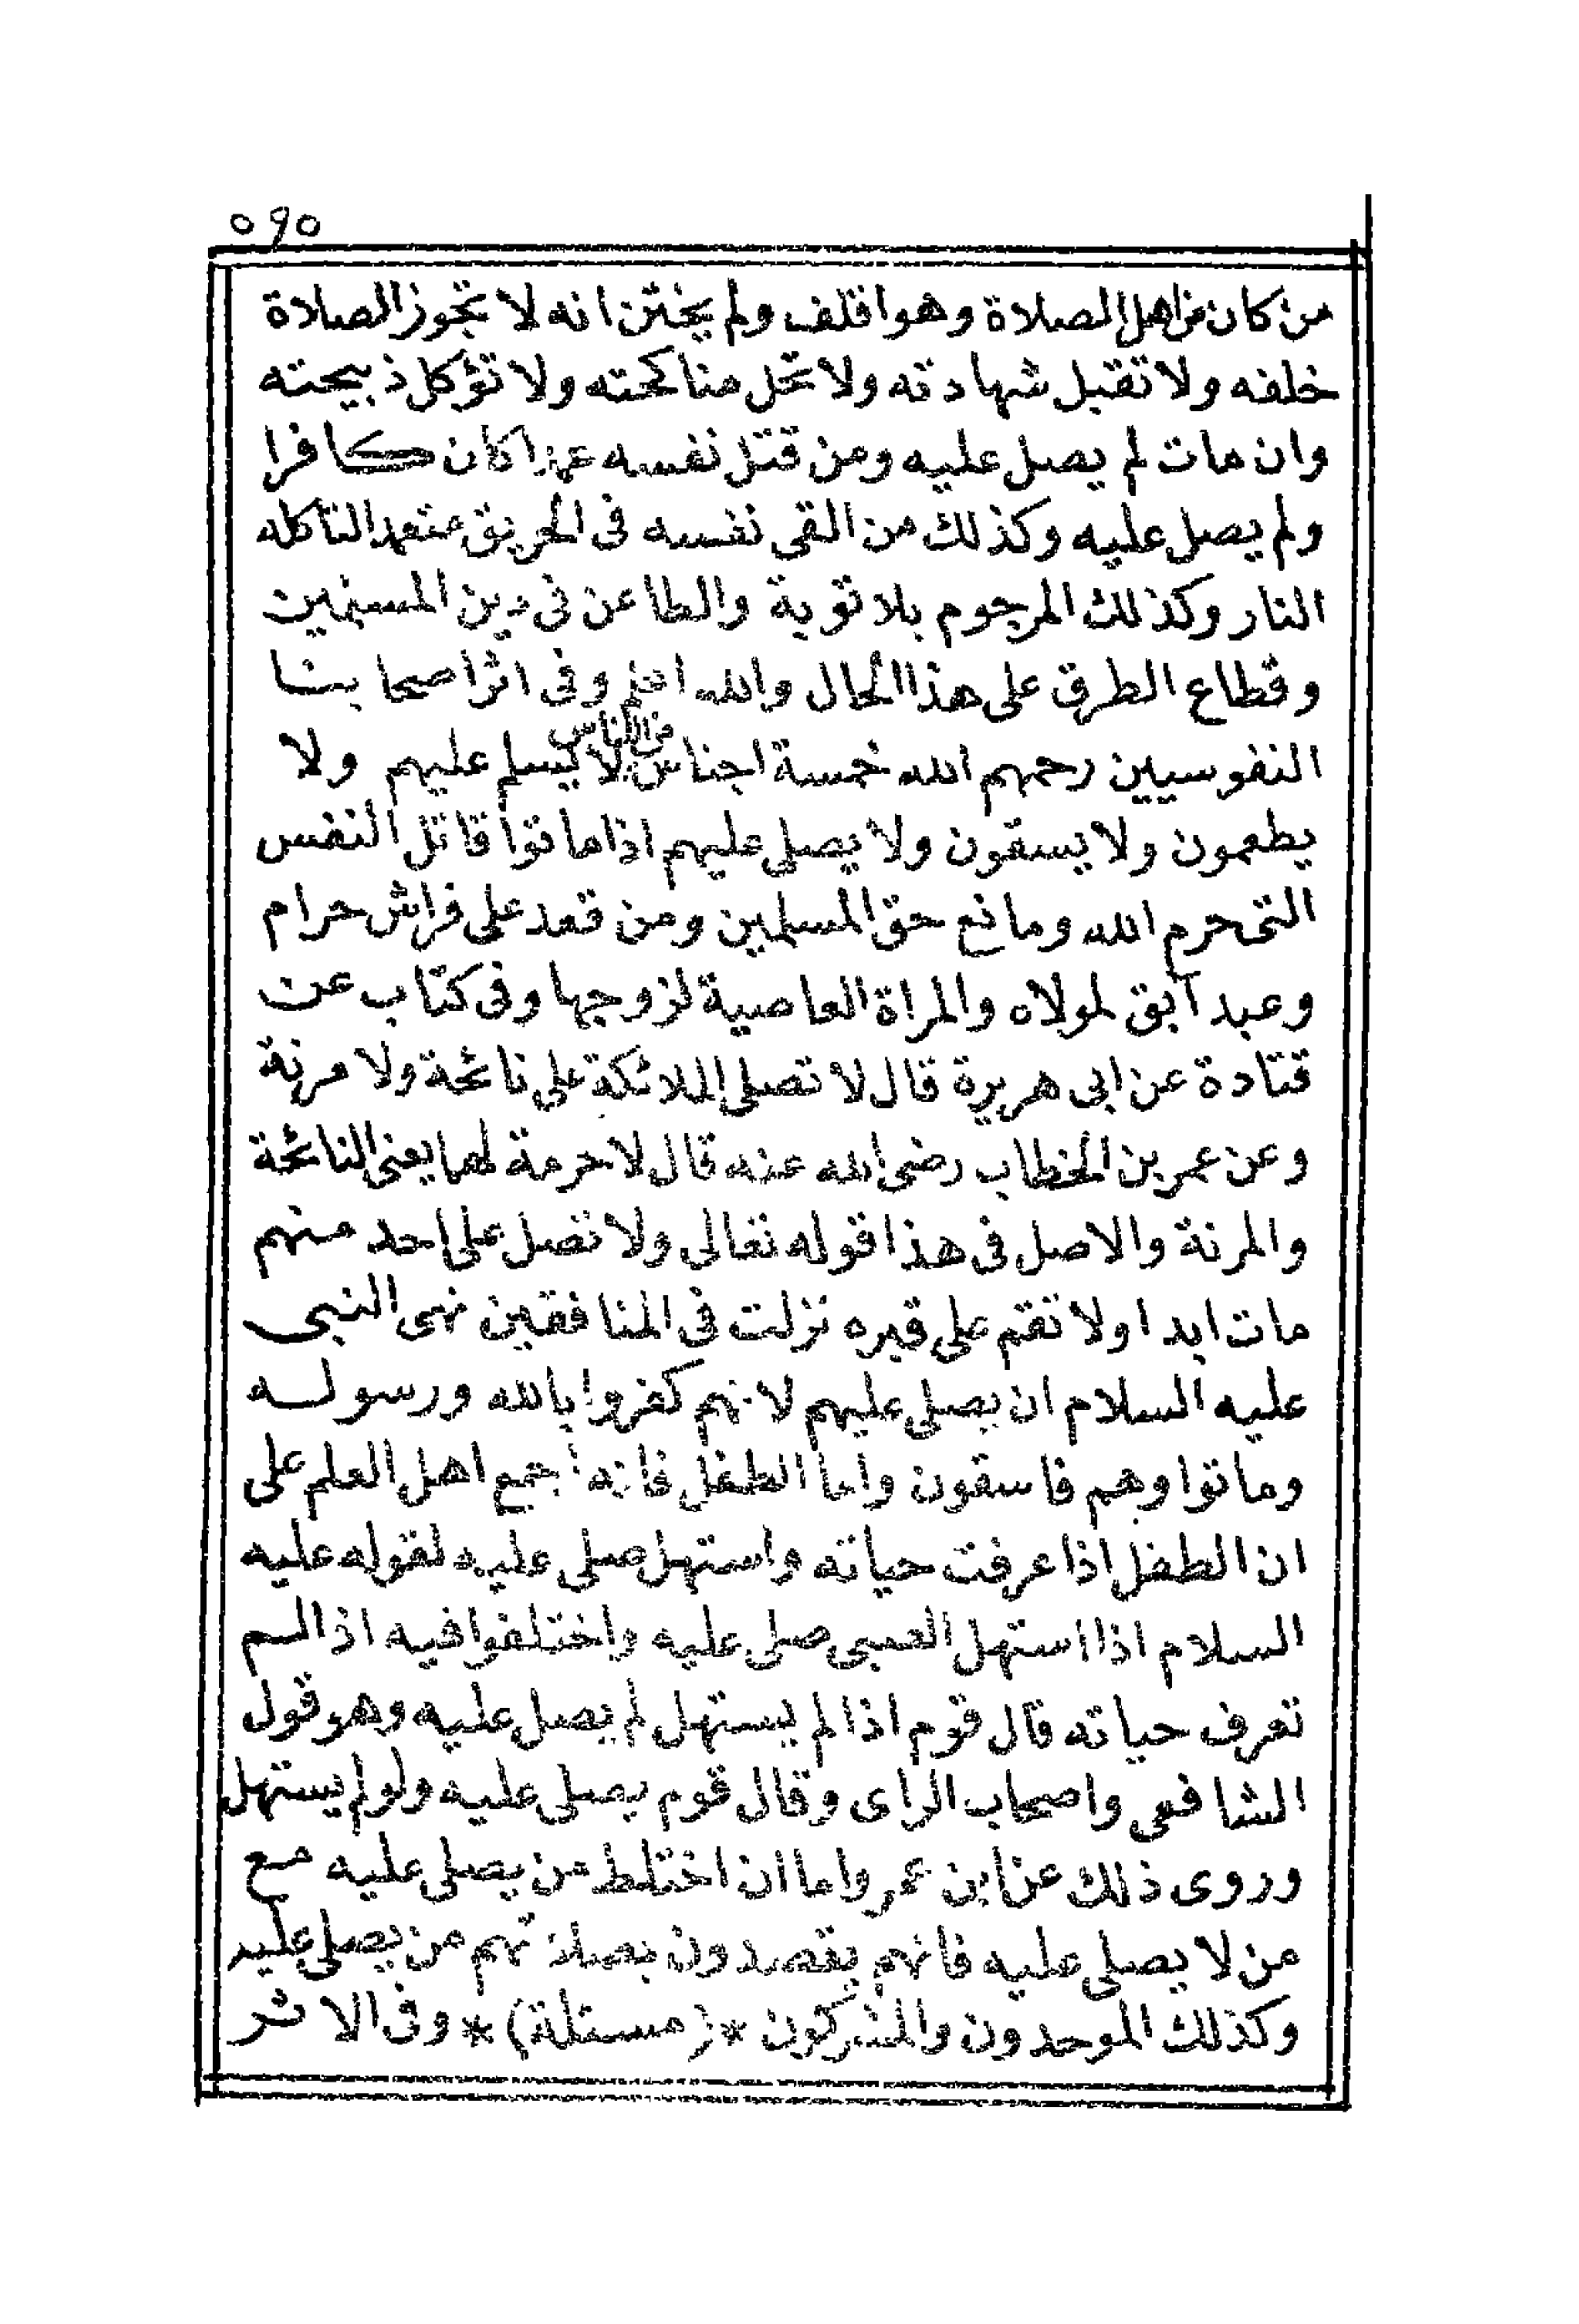 ٥٩٥
من كان من اهل الصلاة وهو اقلف ولم يختتن انه لا تجوز الصلاة
خلفه ولا تقبل شهادته ولا تحل مناكحته ولا تؤكل ذبيحته
وان مات لم يصل عليه ومن قتل نفسه عمدا كان كافرا
ولم يصل عليه وكذلك من القى نفسه فى الحريق متعمدا لتاكله
النار وكذلك المرجوم بلا توبة والطاعن فى دين المسلمين
وقطاع الطرق على هذا الحال والله اعلم وفى اثر اصحابنا
النفوسيين رحمهم الله خمسة اجناس من الناس لا يسلم عليهم ولا
يطعمون ولا يسقون ولا يصلى عليهم اذا ماتوا قاتل النفس
التى حرم الله ومانع حق المسلمين ومن قعد على فراش حرام
وعبد آبق لمولاه والمراة العاصية لزوجها وفى كتاب عن
قتادة عن ابى هريرة قال لا تصلى الملائكة على نائحة ولا مرنة
وعن عمر بن الخطاب رضى الله عنه قال لا حرمة لهما يعنى النائحة
والمرنة والاصل فى هذا قوله تعالى ولا تصل على احد منهم
مات ابدا ولا تقم على قبره نزلت فى المنافقين نهى النبى
عليه السلام ان يصلى عليهم لانهم كفروا بالله ورسوله
وماتوا وهم فاسقون واما الطفل فانه اجمع اهل العلم على
ان الطفل اذا عرفت حياته واستهل صلى عليه لقوله عليه
السلام اذا استهل الصبى صلى عليه واختلفوا فيه اذا لم
تعرف حياته قال قوم اذا لم يستهل لم يصل عليه وهو قول
الشافعى واصحاب الراى وقال قوم يصلى عليه ولو لم يستهل
وروى ذلك عن ابن عمر واما ان اختلط من يصلى عليه مع
من لا يصلى عليه فانهم يقصدون بصلاتهم من يصلى عليه
وكذلك الموحدون والمشركون *(مسئلة)* وفى الاثر